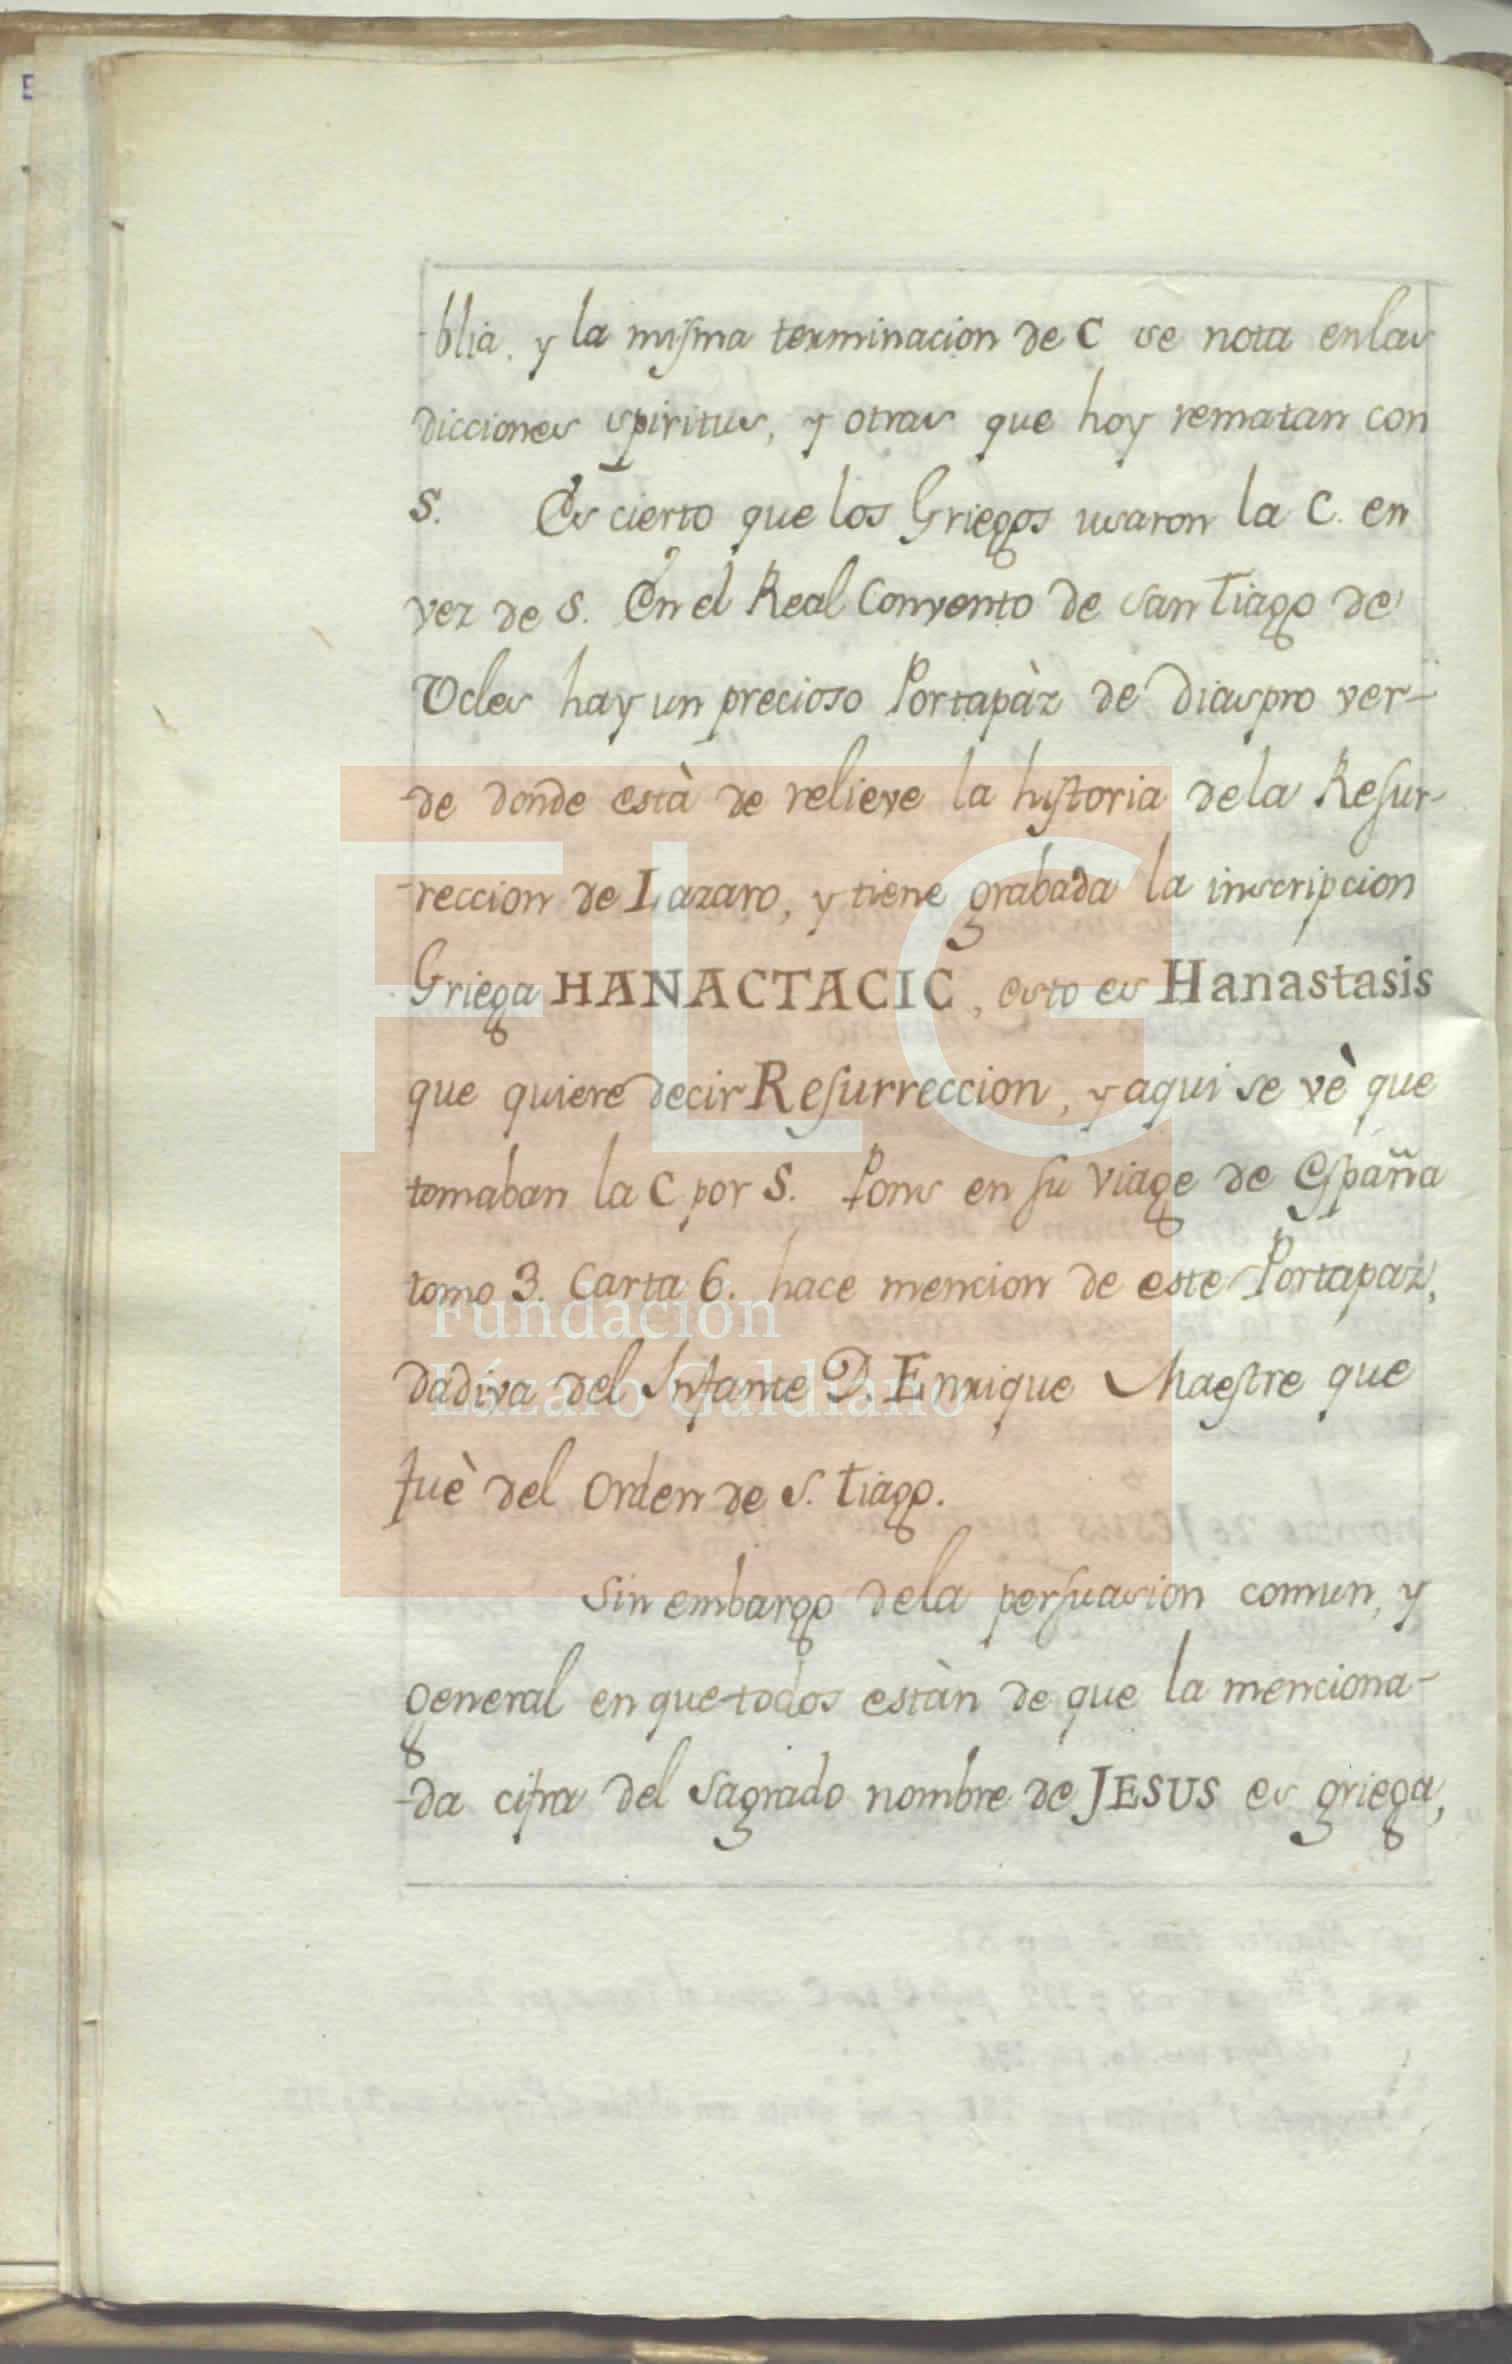 -blia. y la misma terminacion de C se nota enlas
dicciones spiritus, y otras que hoy rematan con
S. Es cierto que los Griegos usaron la C. en
vez de S. En el Real Convento de san Tiago de
Ucles hay un precioso Portapàz de Diaspro ver-
-de donde està de relieve la historia dela Resur-
-reccion de Lazaro, y tiene grabada la inscripcion
Griega HANACTACIC, esto es Hanastasis
que quiere decir Resurreccion, y aqui se vè que
tomaban la C por S. Pons en su viage de España
tomo 3. Carta 6. hace mencion de este Portapaz,
dadiva del Infante D. Enrique Maestre que
fuè del Orden de S. Tiago.
Sin embargo dela persuasion comun, y
general en que todos estàn de que la menciona-
-da cifra del Sagrado nombre de JESUS es griega,
FLG
Fundación
Lázaro Galdiano